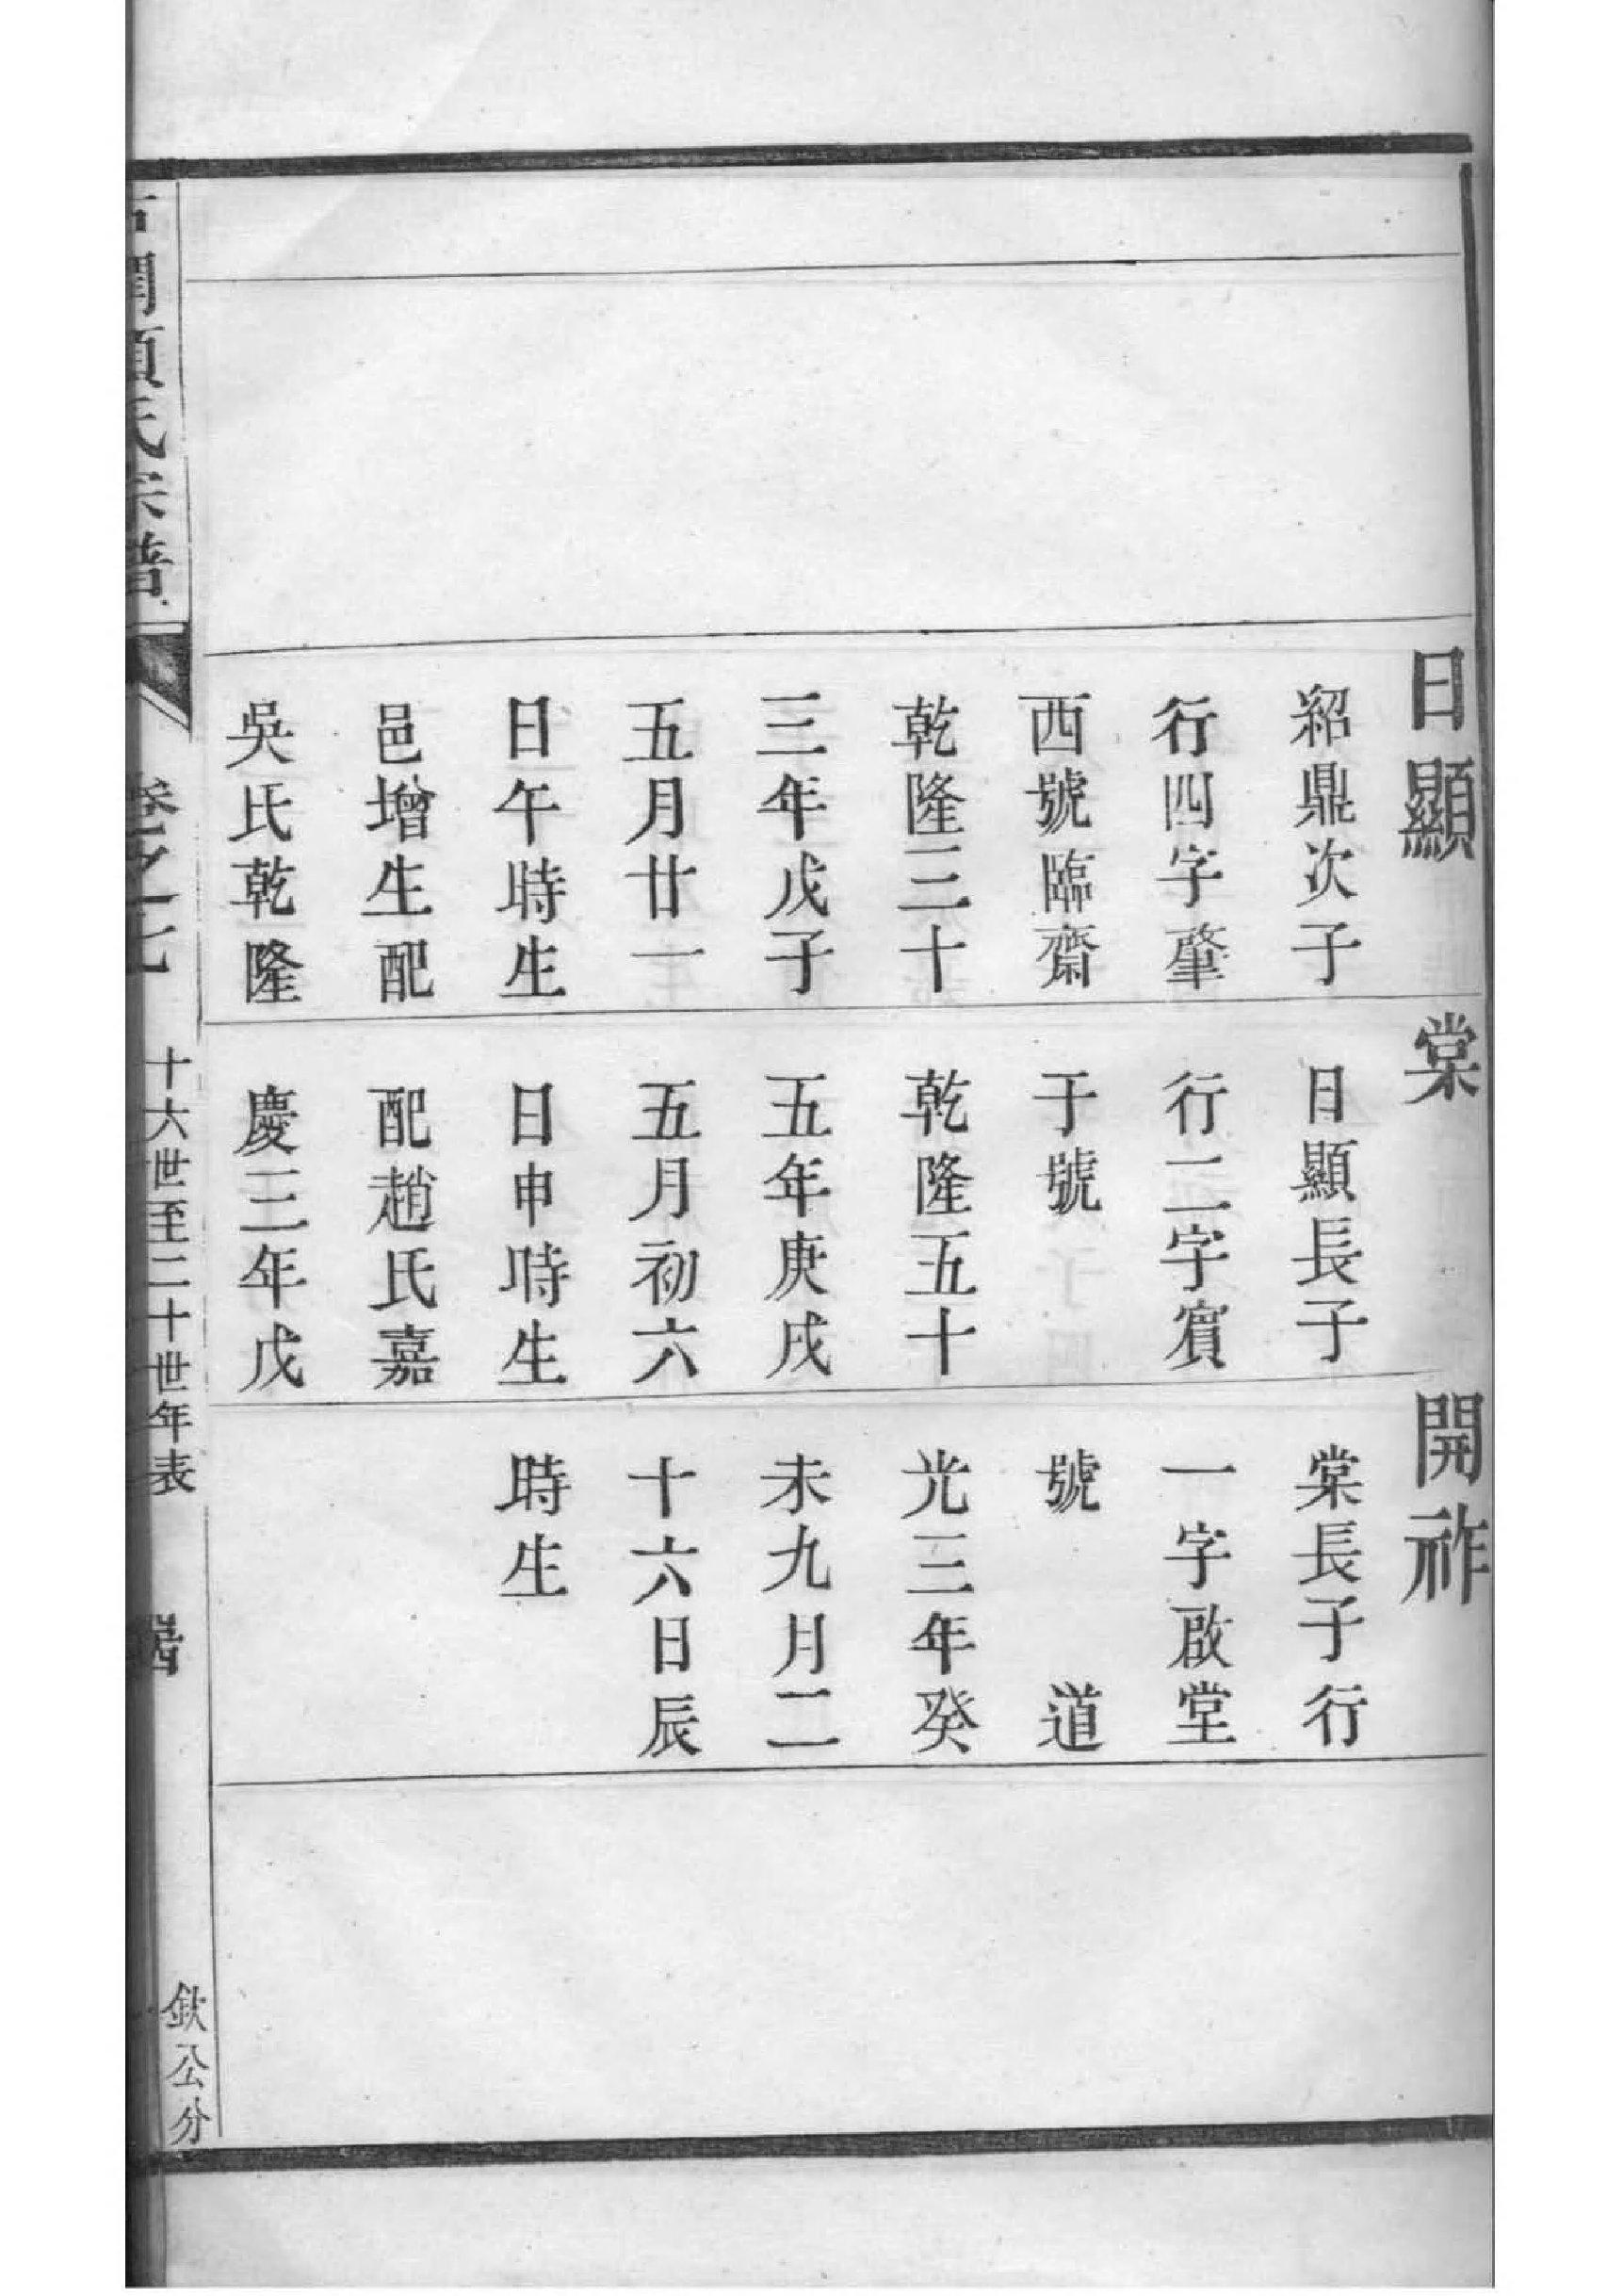 日顯
紹鼎次子
行四字肇
西號臨齋
乾隆三十
三年戊子
五月廿一
日午時生
邑增生配
吳氏乾隆
棠
日顯長子
行二字賓
于號
乾隆五十
五年庚戌
五月初六
日申時生
配趙氏嘉
慶三年戊
開祚
棠長子行
一字啟堂
號　　道
光三年癸
未九月二
十六日辰
時生
氏宗譜
卷之十七
十六世至二十世年表
欽公分